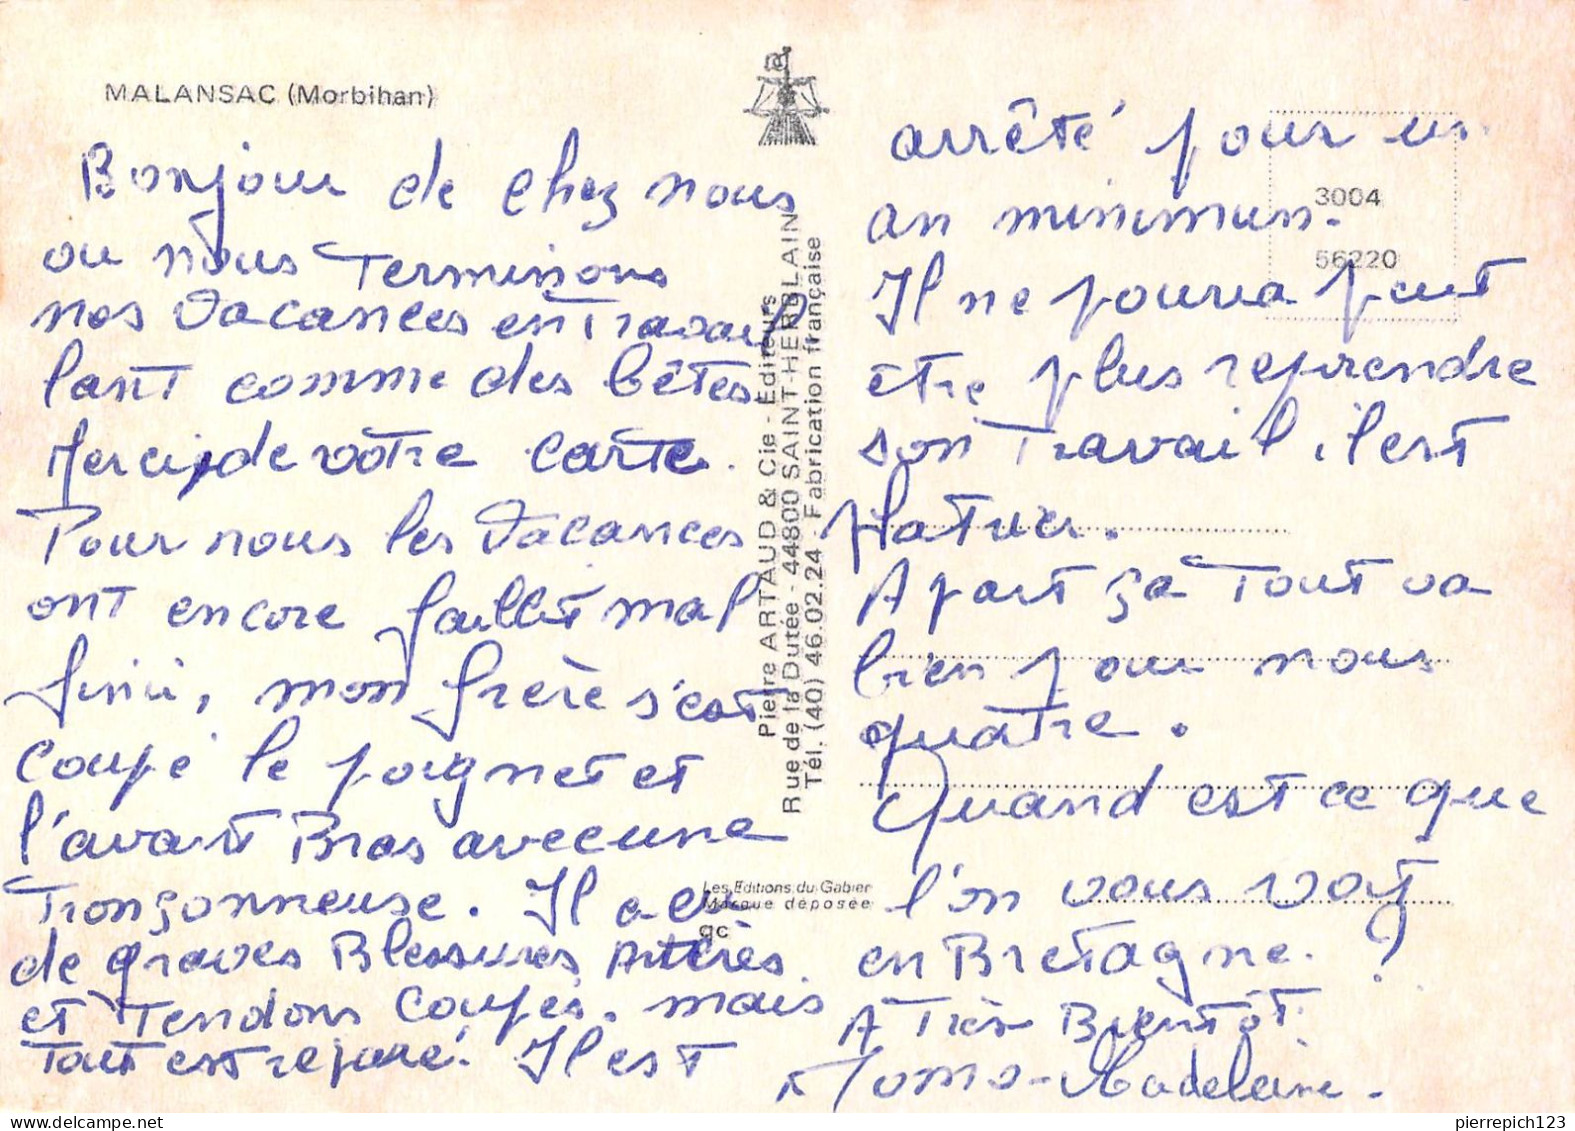 MALANSAC (Morbihan)
Bonjour de chez nous
ou nous Terminons
nos vacances en Travail
lant comme des bêtes
Merci de votre carte.
Pour nous les vacances
ont encore faillit mal
finir, mon frère s'est
coupé le poignet et
l'avant Bras avec une
Tronçonneuse. Il a eu
de graves Blessures Artères
et Tendons coupés. mais
Tout est réparé. Il est
Pierre ARTAUD & Cie - Éditeurs
Rue de la Dutée - 44800 SAINT-HERBLAIN
Tél. (40) 46.02.24 - Fabrication française
Les Editions du Gabier
Marque déposée
gc
3004
56220
arrêté pour un
an minimun.
Il ne pourra peut
être plus reprendre
son Travail, il est
platrier.
A part ça Tout va
bien pour nous
quatre.
Quand est ce que
l'on vous voit
en Bretagne. ?
A Très Bientôt.
Momo - Madeleine.
pierrepich123